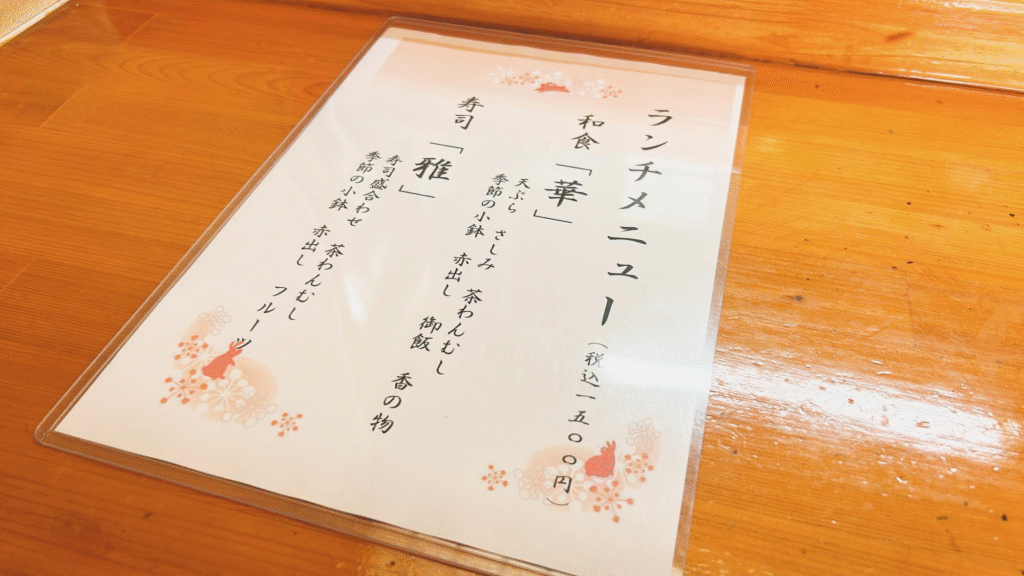 ランチメニュー(税込一五〇〇円)
和食「華」
天ぷら さしみ 茶わんむし
季節の小鉢 赤出し 御飯 香の物
寿司「雅」
寿司盛合わせ 茶わんむし
季節の小鉢 赤出し フルーツ